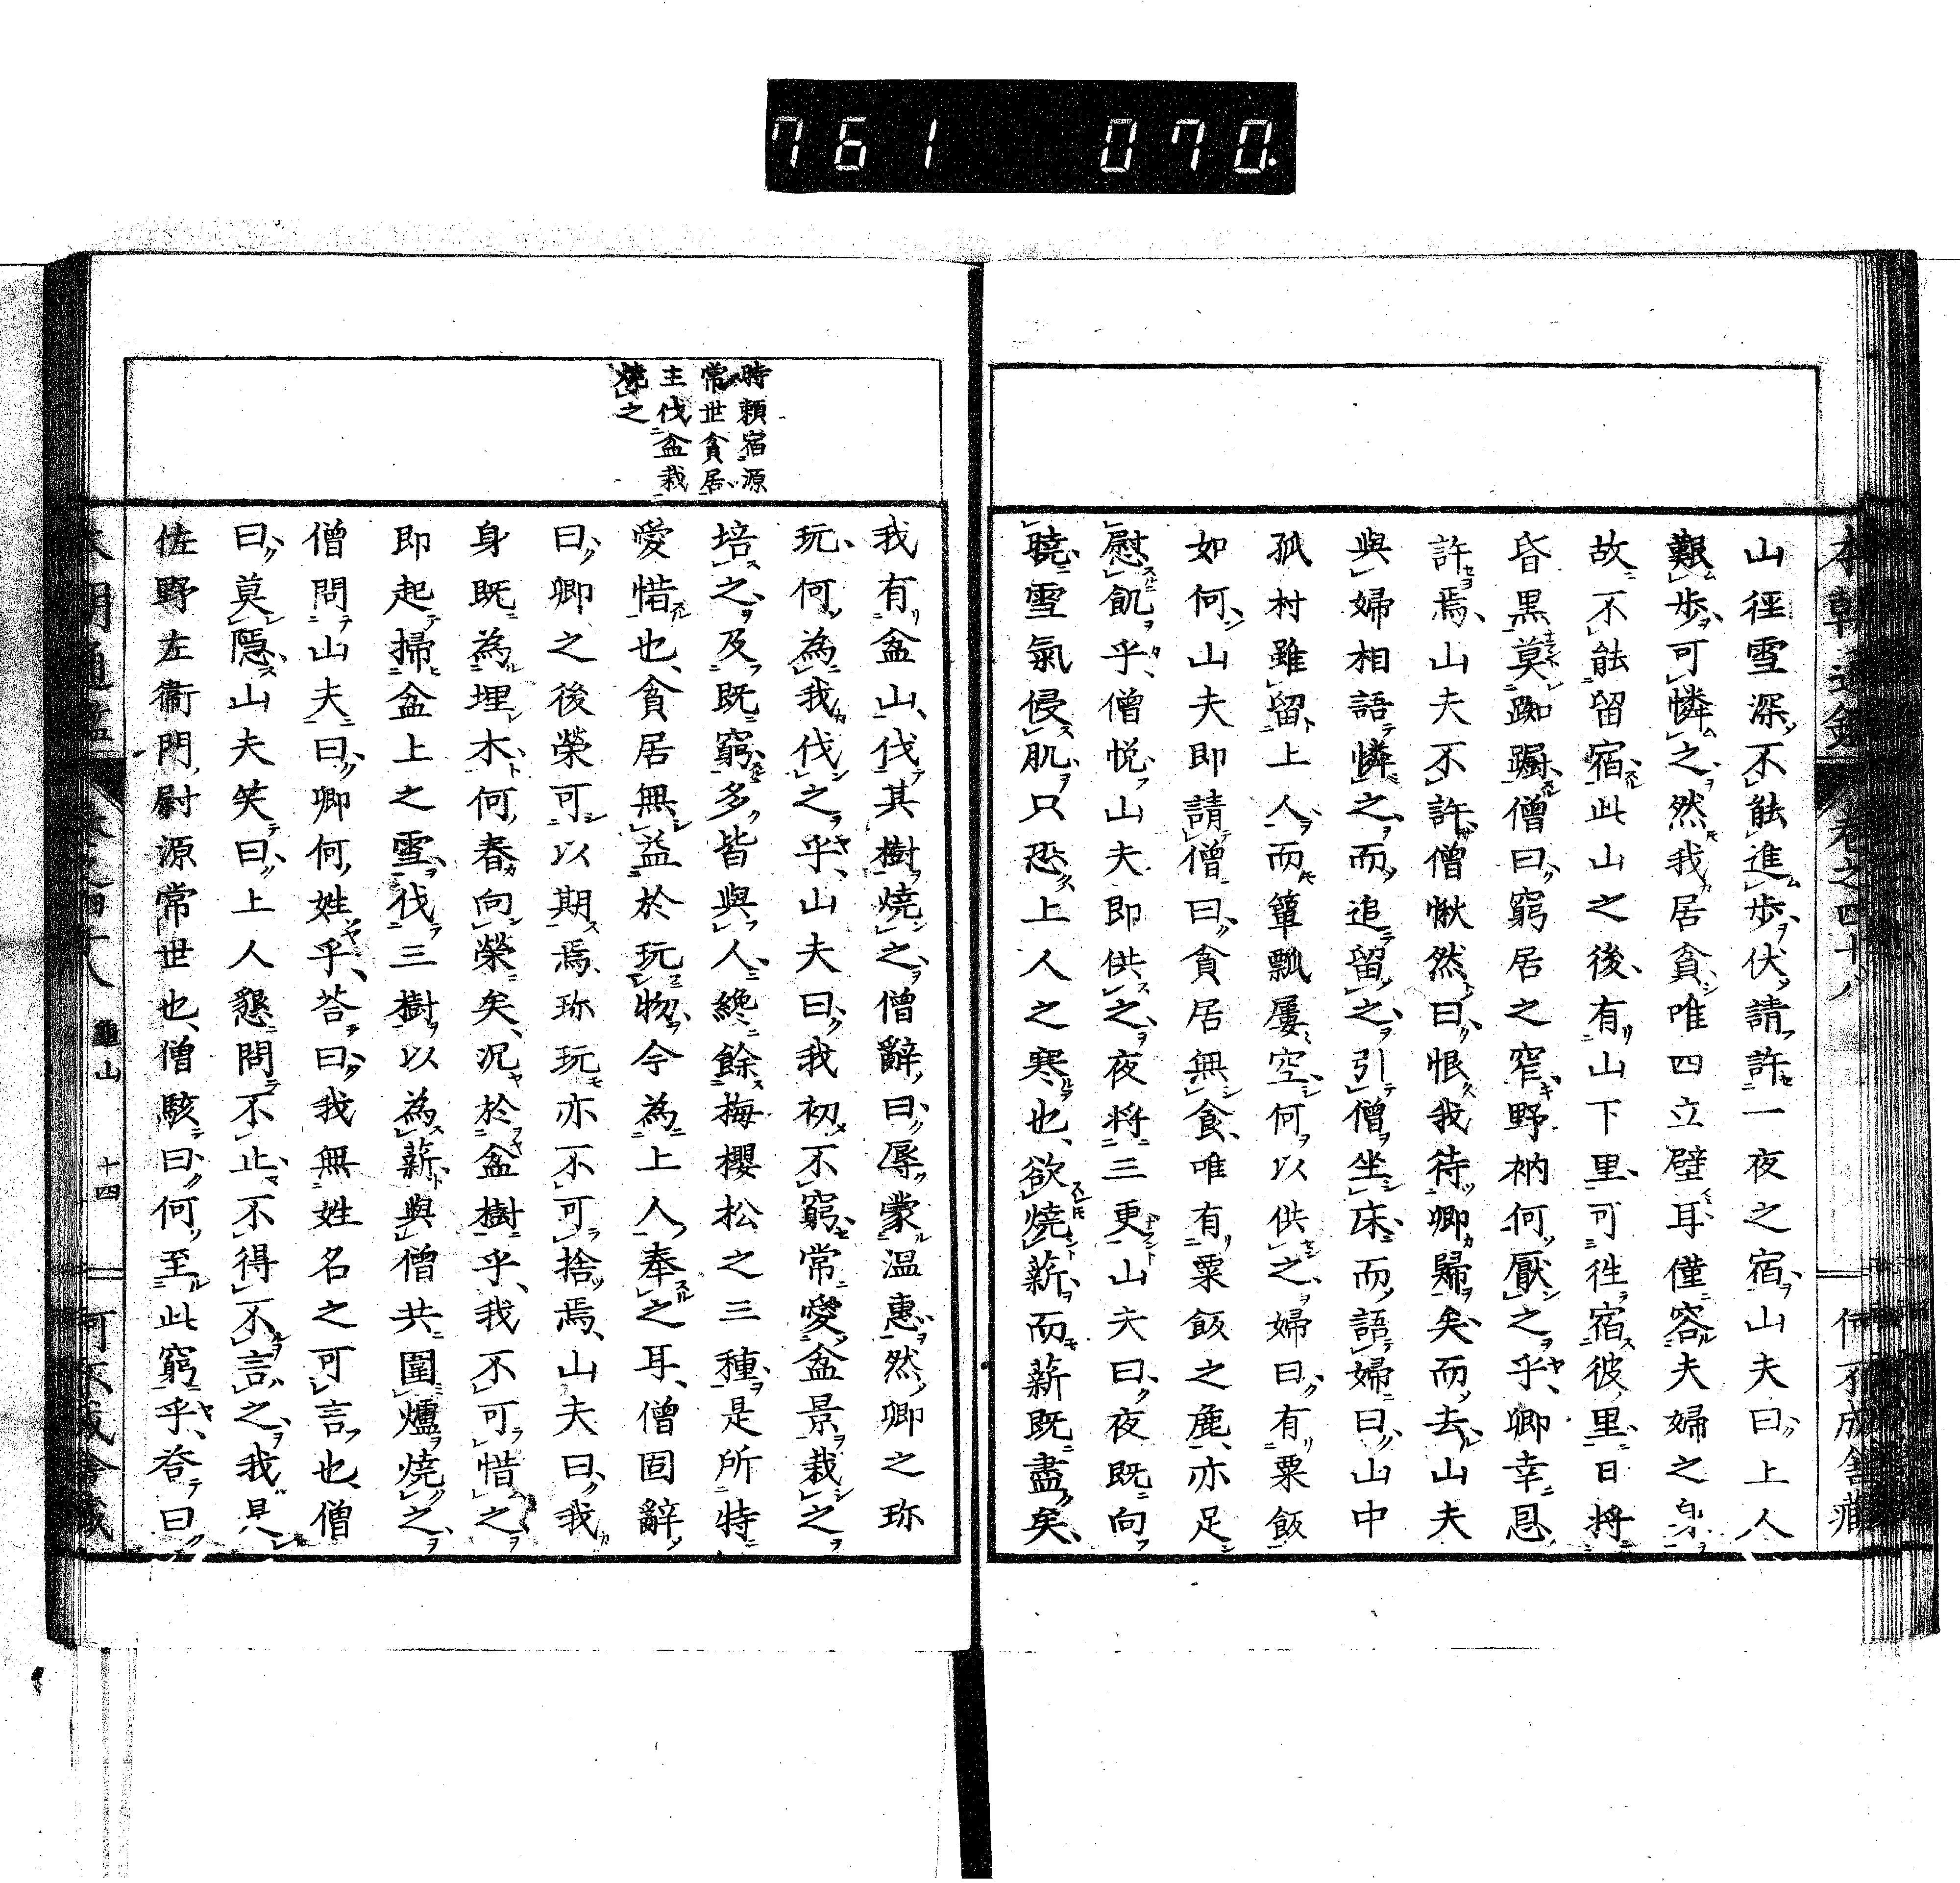 761 070.
本朝通鑑 卷之四十八 何不成舎藏
山徑雪深不能進歩伏請許一夜之宿山夫曰上人
艱歩可憐之然我居貧唯四立壁耳僅容夫婦之身
故不能留宿此山之後有山下里可徃宿彼里日將
昏黒莫踟躕僧曰窮居之窄野衲何厭之乎卿幸恩
許焉山夫不許僧愀然曰恨我待卿歸矣而去山夫
與婦相語憐之而追留之引僧坐床而語婦曰山中
孤村雖留上人而簞瓢屢空何以供之婦曰有粟飯
如何山夫即請僧曰貧居無食唯有粟飯之麁亦足
慰飢乎僧悦山夫即供之夜將三更山夫曰夜既向
曉雪氣侵肌只恐上人之寒也欲燒薪而薪既盡矣
時頼宿源
常世貪居
主伐盆栽
燒之
我有盆山伐其樹燒之僧辭曰辱蒙温惠然卿之珎
玩何為我伐之乎山夫曰我初不窮常愛盆景栽之
培之及既窮多皆與人纔餘梅櫻松之三種是所特
愛惜也貪居無益於玩物今為上人奉之耳僧固辭
曰卿之後榮可以期焉珎玩亦不可捨焉山夫曰我
身既為埋木何春向榮矣况於盆樹乎我不可惜之
即起掃盆上之雪伐三樹以為薪與僧共圍爐燒之
僧問山夫曰卿何姓乎荅曰我無姓名之可言也僧
曰莫隱山夫笑曰上人懇問不止不得不言之我具
佐野左衞門尉源常世也僧駭曰何至此窮乎荅曰
龜山 十四